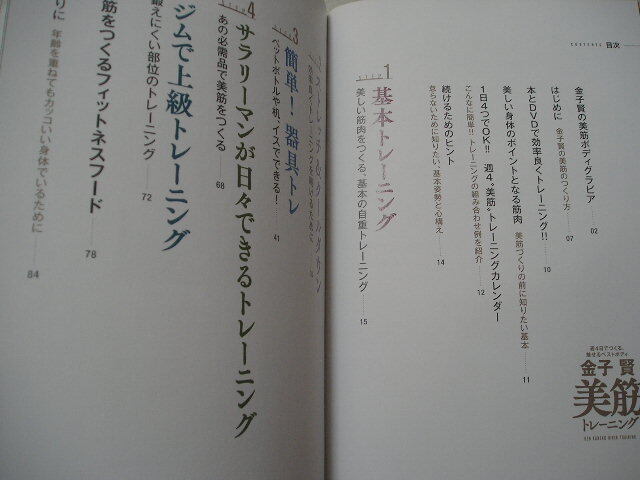 CONTENTS 目次
金子賢の美筋ボディグラビア
02
はじめに 金子賢の美筋のつくり方
07
本とDVDで効率良くトレーニング!!
10
美しい身体のポイントとなる筋肉 美筋づくりの前に知りたい基本
11
1日4つでOK!! 週4“美筋”トレーニングカレンダー
こんなに簡単!! トレーニングの組み合わせ例を紹介
12
続けるためのヒント
怠らないために知りたい、基本姿勢と心構え
14
STEP 1 基本トレーニング
美しい筋肉をつくる、基本の自重トレーニング
15
週4日でつくる、
魅せるベストボディ
金子 賢
美筋
トレーニング
KEN KANEKO BIKIN TRAINING
3 簡単!器具トレ
ペットボトルや机、イスでできる!
41
STEP 4 サラリーマンが日々できるトレーニング
あの必需品で美筋をつくる
68
ジムで上級トレーニング
鍛えにくい部位のトレーニング
72
筋をつくるフィットネスフード
78
りに 年齢を重ねてもカッコいい身体でいるために
84